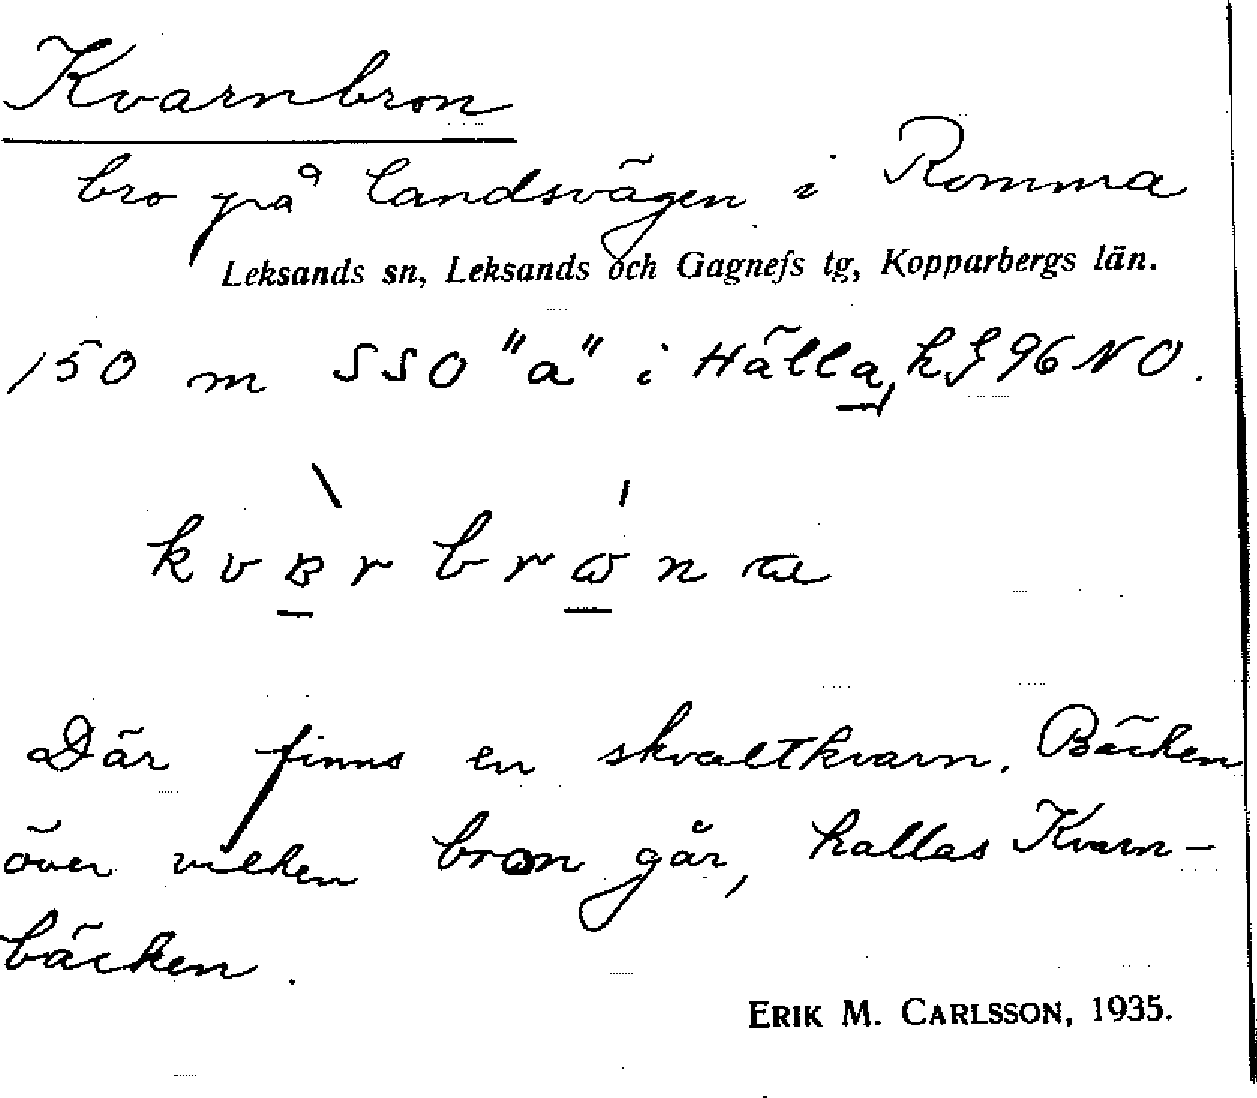 Kvarnbron
bro på landsvägen i Romma
Leksands sn, Leksands och Gagnefs tg, Kopparbergs län.
150 m SSO "a" i Hälla, kJ 96 NO.
Där finns en skvaltkvarn. Bäcken
över vilken bron går, kallas Kvarn-
bäcken.
ERIK M. CARLSSON, 1935.